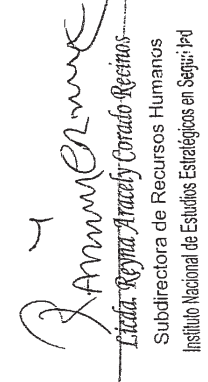 Licda. Reyna Aracely Corado Recinos
Subdirectora de Recursos Humanos
Instituto Nacional de Estudios Estratégicos en Seguridad